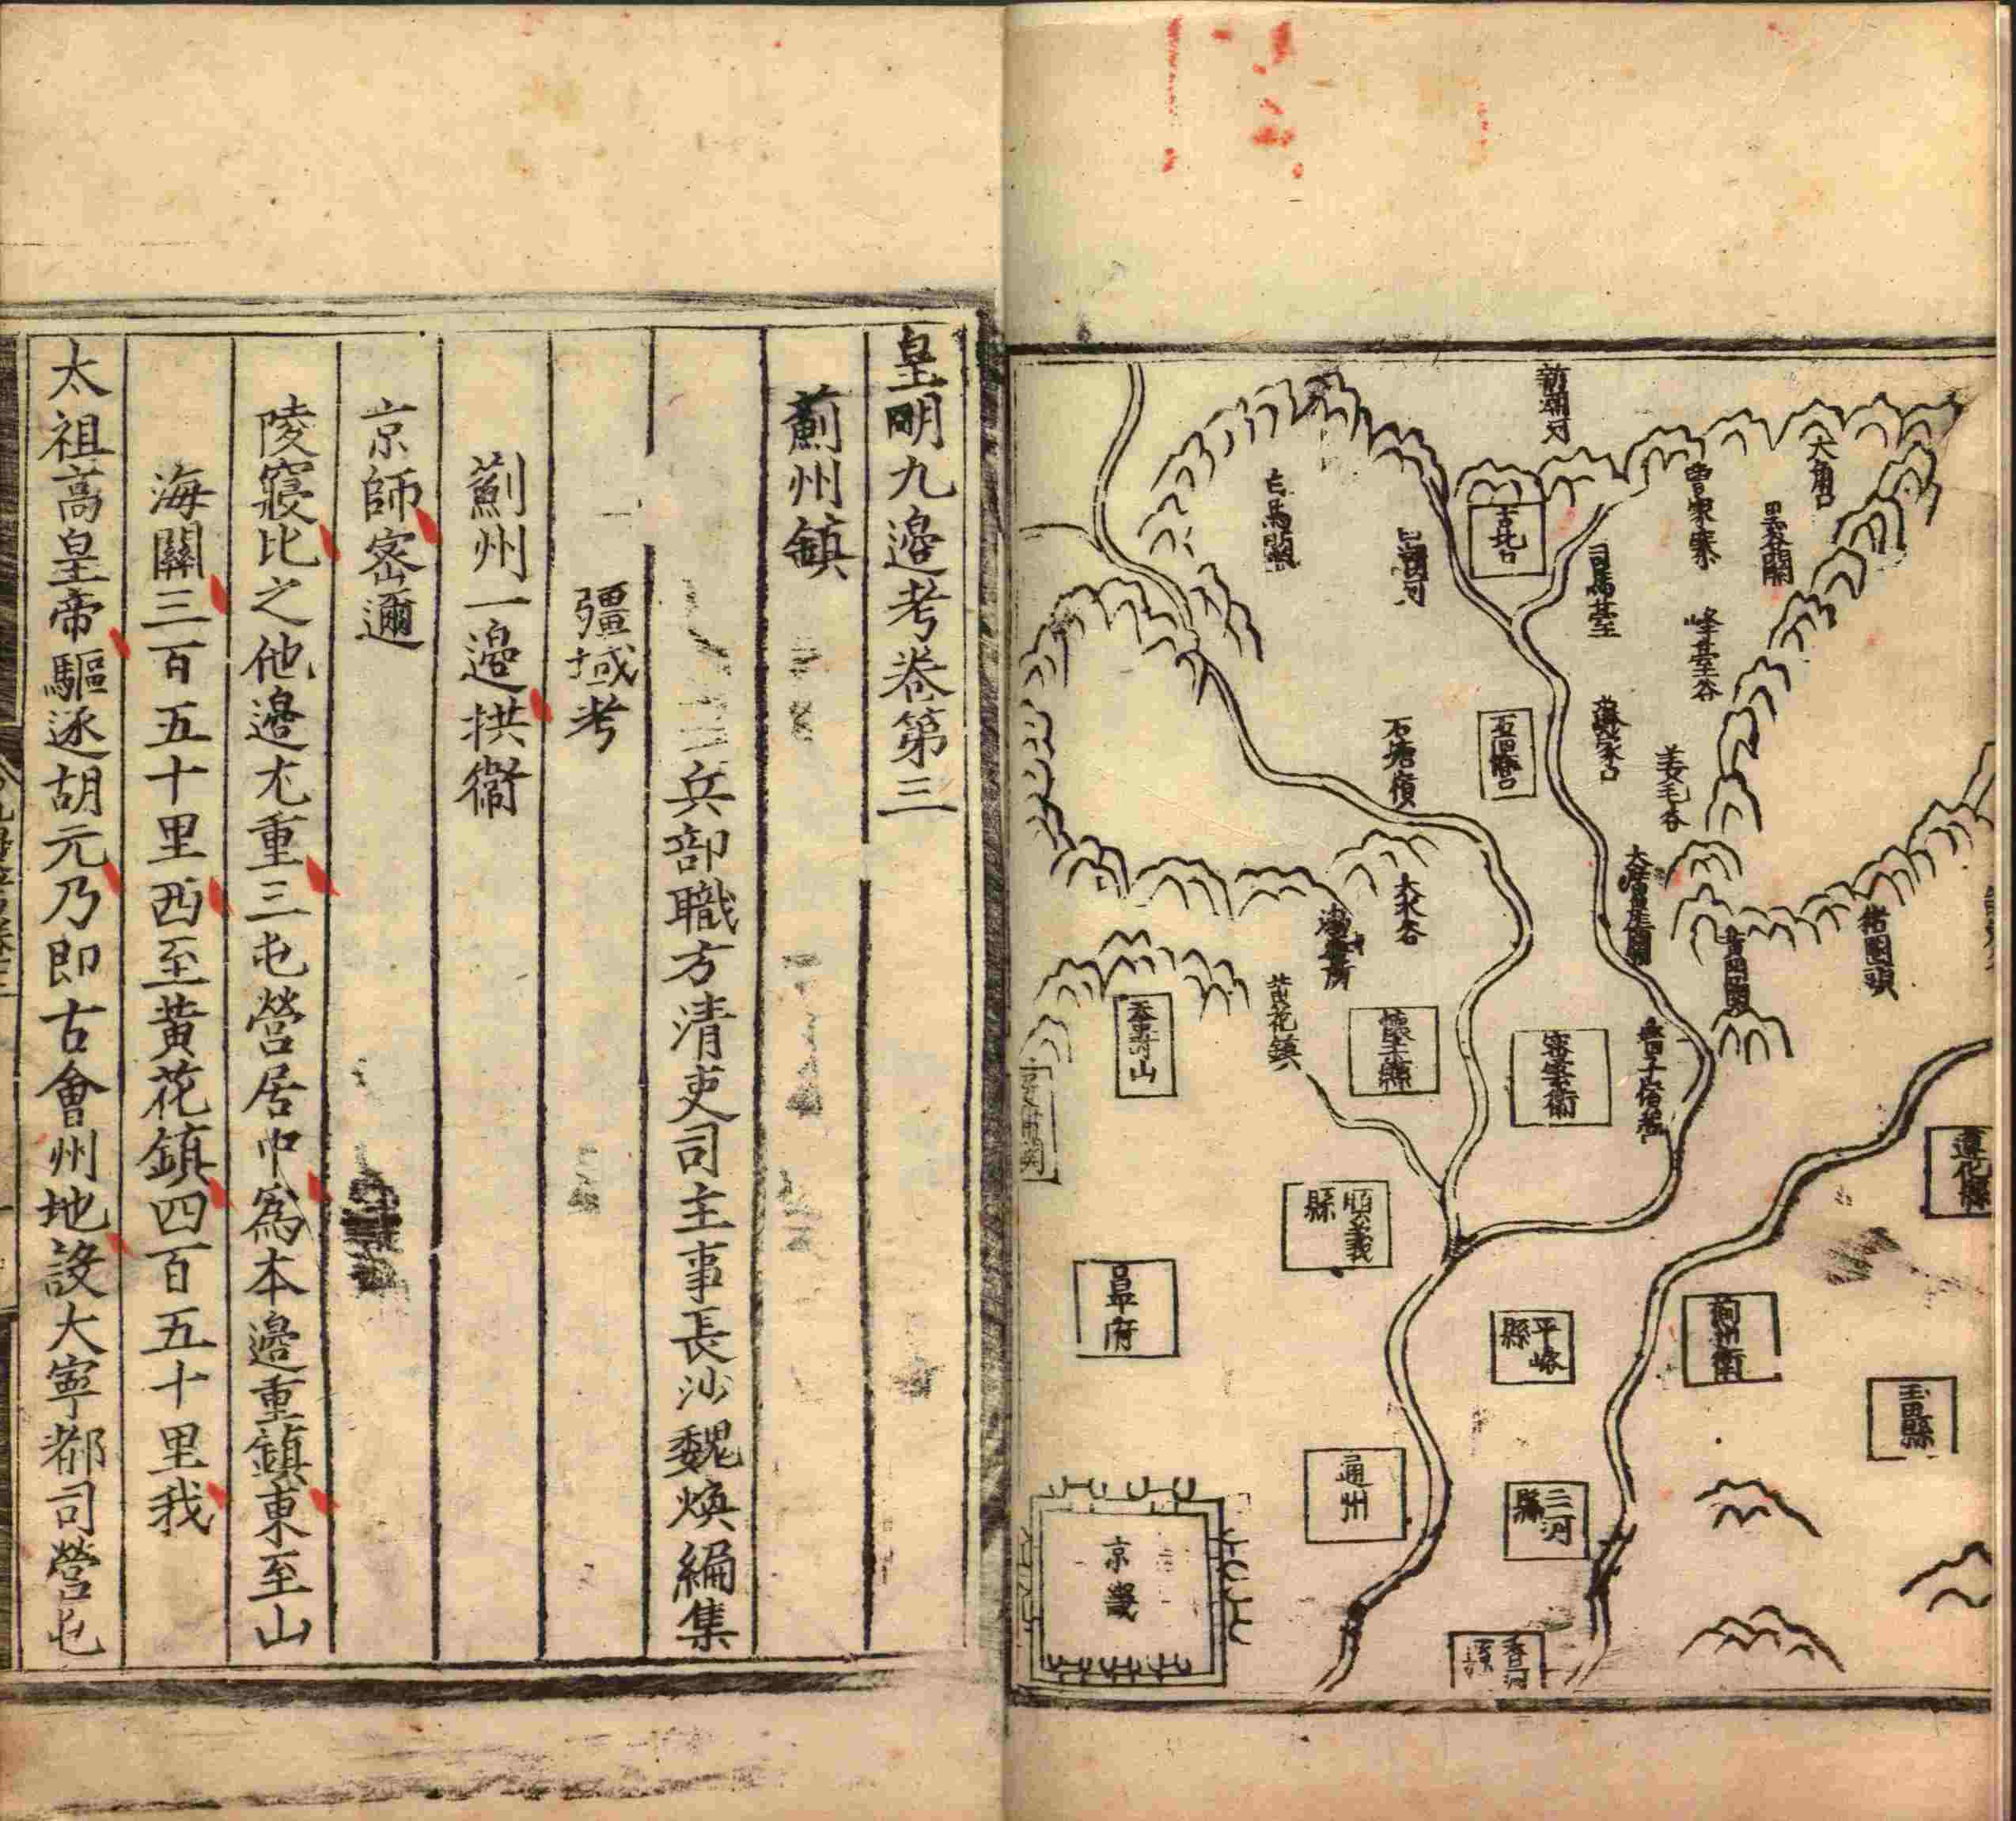 新開河
大角口
曹家寨
黑谷關
古北口
白馬關
司馬臺
潮河
峰臺谷
石塘嶺
石匣營
姜毛谷
大水谷
猪圈頭
黃花鎮
天壽山
懷柔縣
密雲衛
遵化縣
順義縣
昌平府
平峪縣
薊州衛
玉田縣
通州
三河縣
京畿
香河縣
皇明九邊考卷第三
薊州鎮
兵部職方清吏司主事長沙魏煥編集
疆域考
薊州一邊拱衛
京師密邇
陵寢比之他邊尤重三屯營居中為本邊重鎮東至山
海關三百五十里西至黃花鎮四百五十里我
太祖高皇帝驅逐胡元乃即古會州地設大寧都司營屯